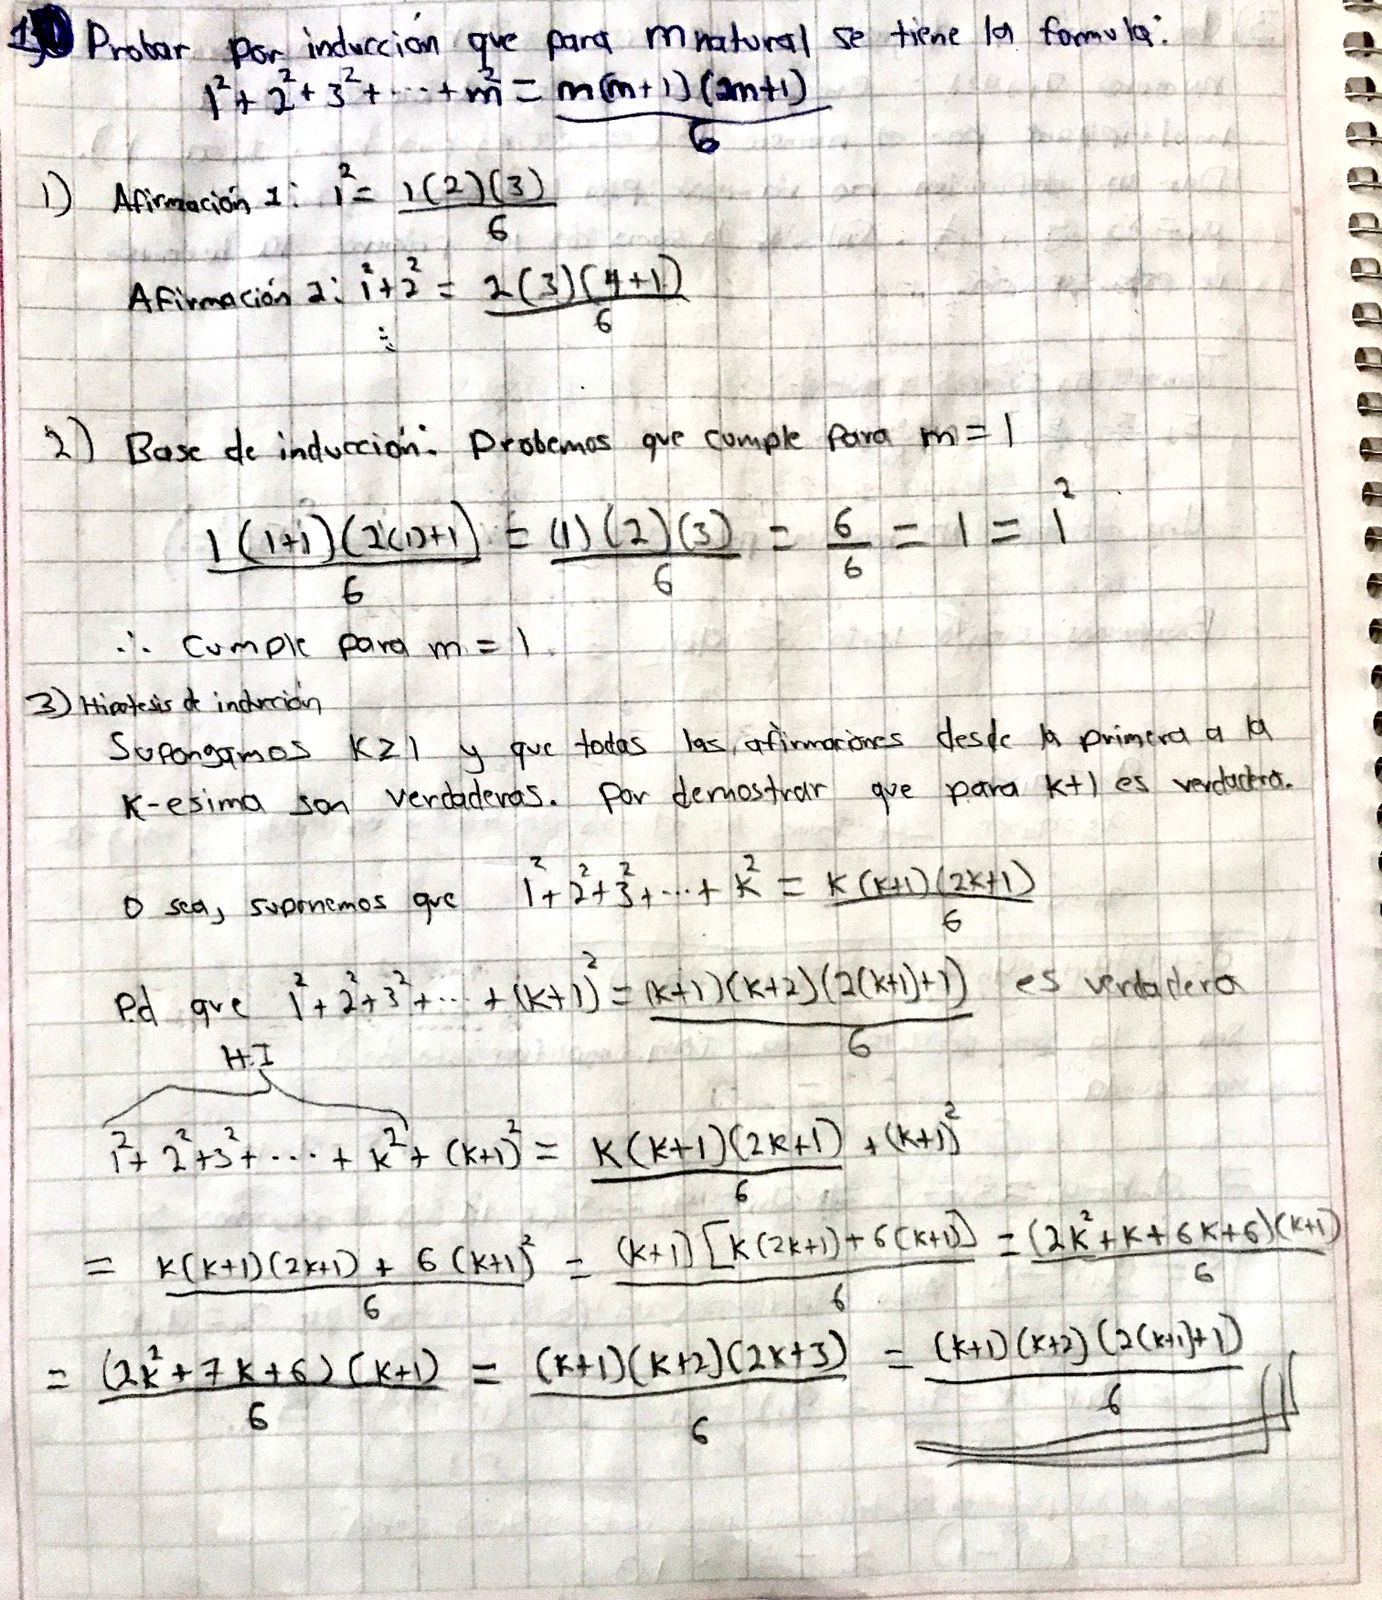 1) Probar por inducción que para m natural se tiene la formula:
1² + 2² + 3² + ... + m² = m(m+1)(2m+1) / 6
1) Afirmación 1: 1² = 1(2)(3) / 6
Afirmación 2: 1² + 2² = 2(3)(4+1) / 6
⋮
2) Base de inducción: Probemos que cumple para m = 1
1(1+1)(2(1)+1) / 6 = (1)(2)(3) / 6 = 6/6 = 1 = 1²
∴ Cumple para m = 1.
3) Hipotesis de inducción
Supongamos K≥1 y que todas las afirmaciones desde la primera a la
K-esima son verdaderas. Por demostrar que para k+1 es verdadera.
O sea, suponemos que 1² + 2² + 3² + ... + k² = k(k+1)(2k+1) / 6
Pd que 1² + 2² + 3² + ... + (k+1)² = (k+1)(k+2)(2(k+1)+1) / 6 es verdadera
H.I
1² + 2² + 3² + ... + k² + (k+1)² = k(k+1)(2k+1) / 6 + (k+1)²
= k(k+1)(2k+1) + 6(k+1)² / 6 = (k+1)[k(2k+1)+6(k+1)] / 6 = (2k²+k+6k+6)(k+1) / 6
= (2k²+7k+6)(k+1) / 6 = (k+1)(k+2)(2k+3) / 6 = (k+1)(k+2)(2(k+1)+1) / 6